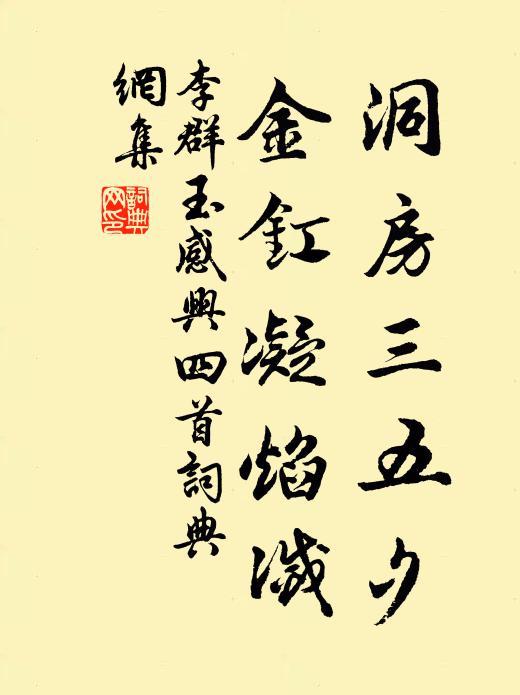 洞房三五夕
金釭凝焰滅
李群玉感興四首詞典
網集
詞典網印